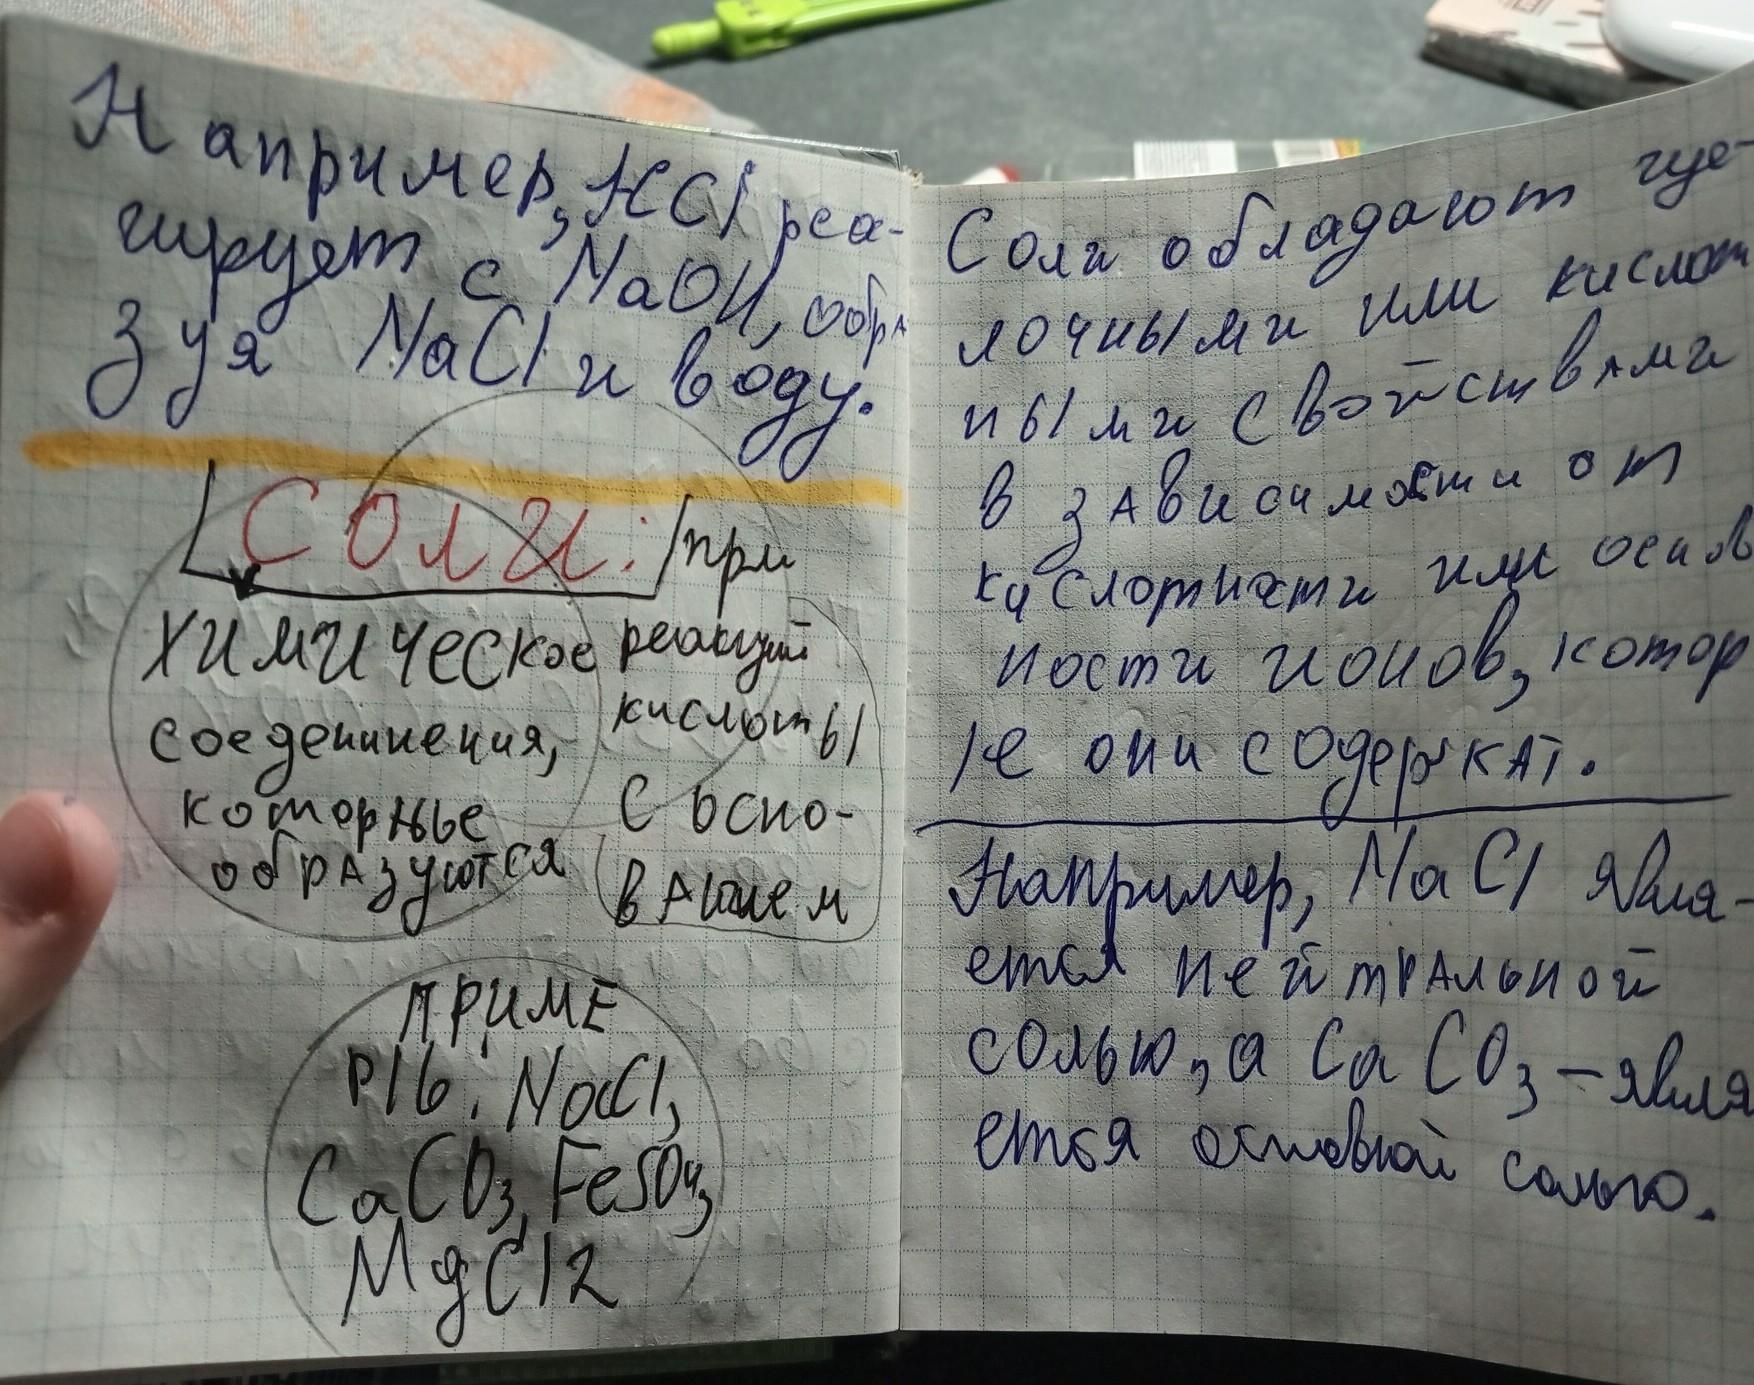 Например, HCl реа-
гирует с NaOH, обра
зуя NaCl и воду.
Соли:
химическое
соеденинения,
которые
образуются
при
реакций
кислоты
с осно-
ванием
ПРИМЕ
РЫ: NaCl,
CaCO3, FeSO4,
MgCl2
Соли обладают ще-
лочными или кислот
ными свойствами
в зависимости от
кислотности или основ
ности ионов, котор
ые они содержат.
Например, NaCl явля-
ется нейтральной
солью, а CaCO3 – явля
ется основной солью.